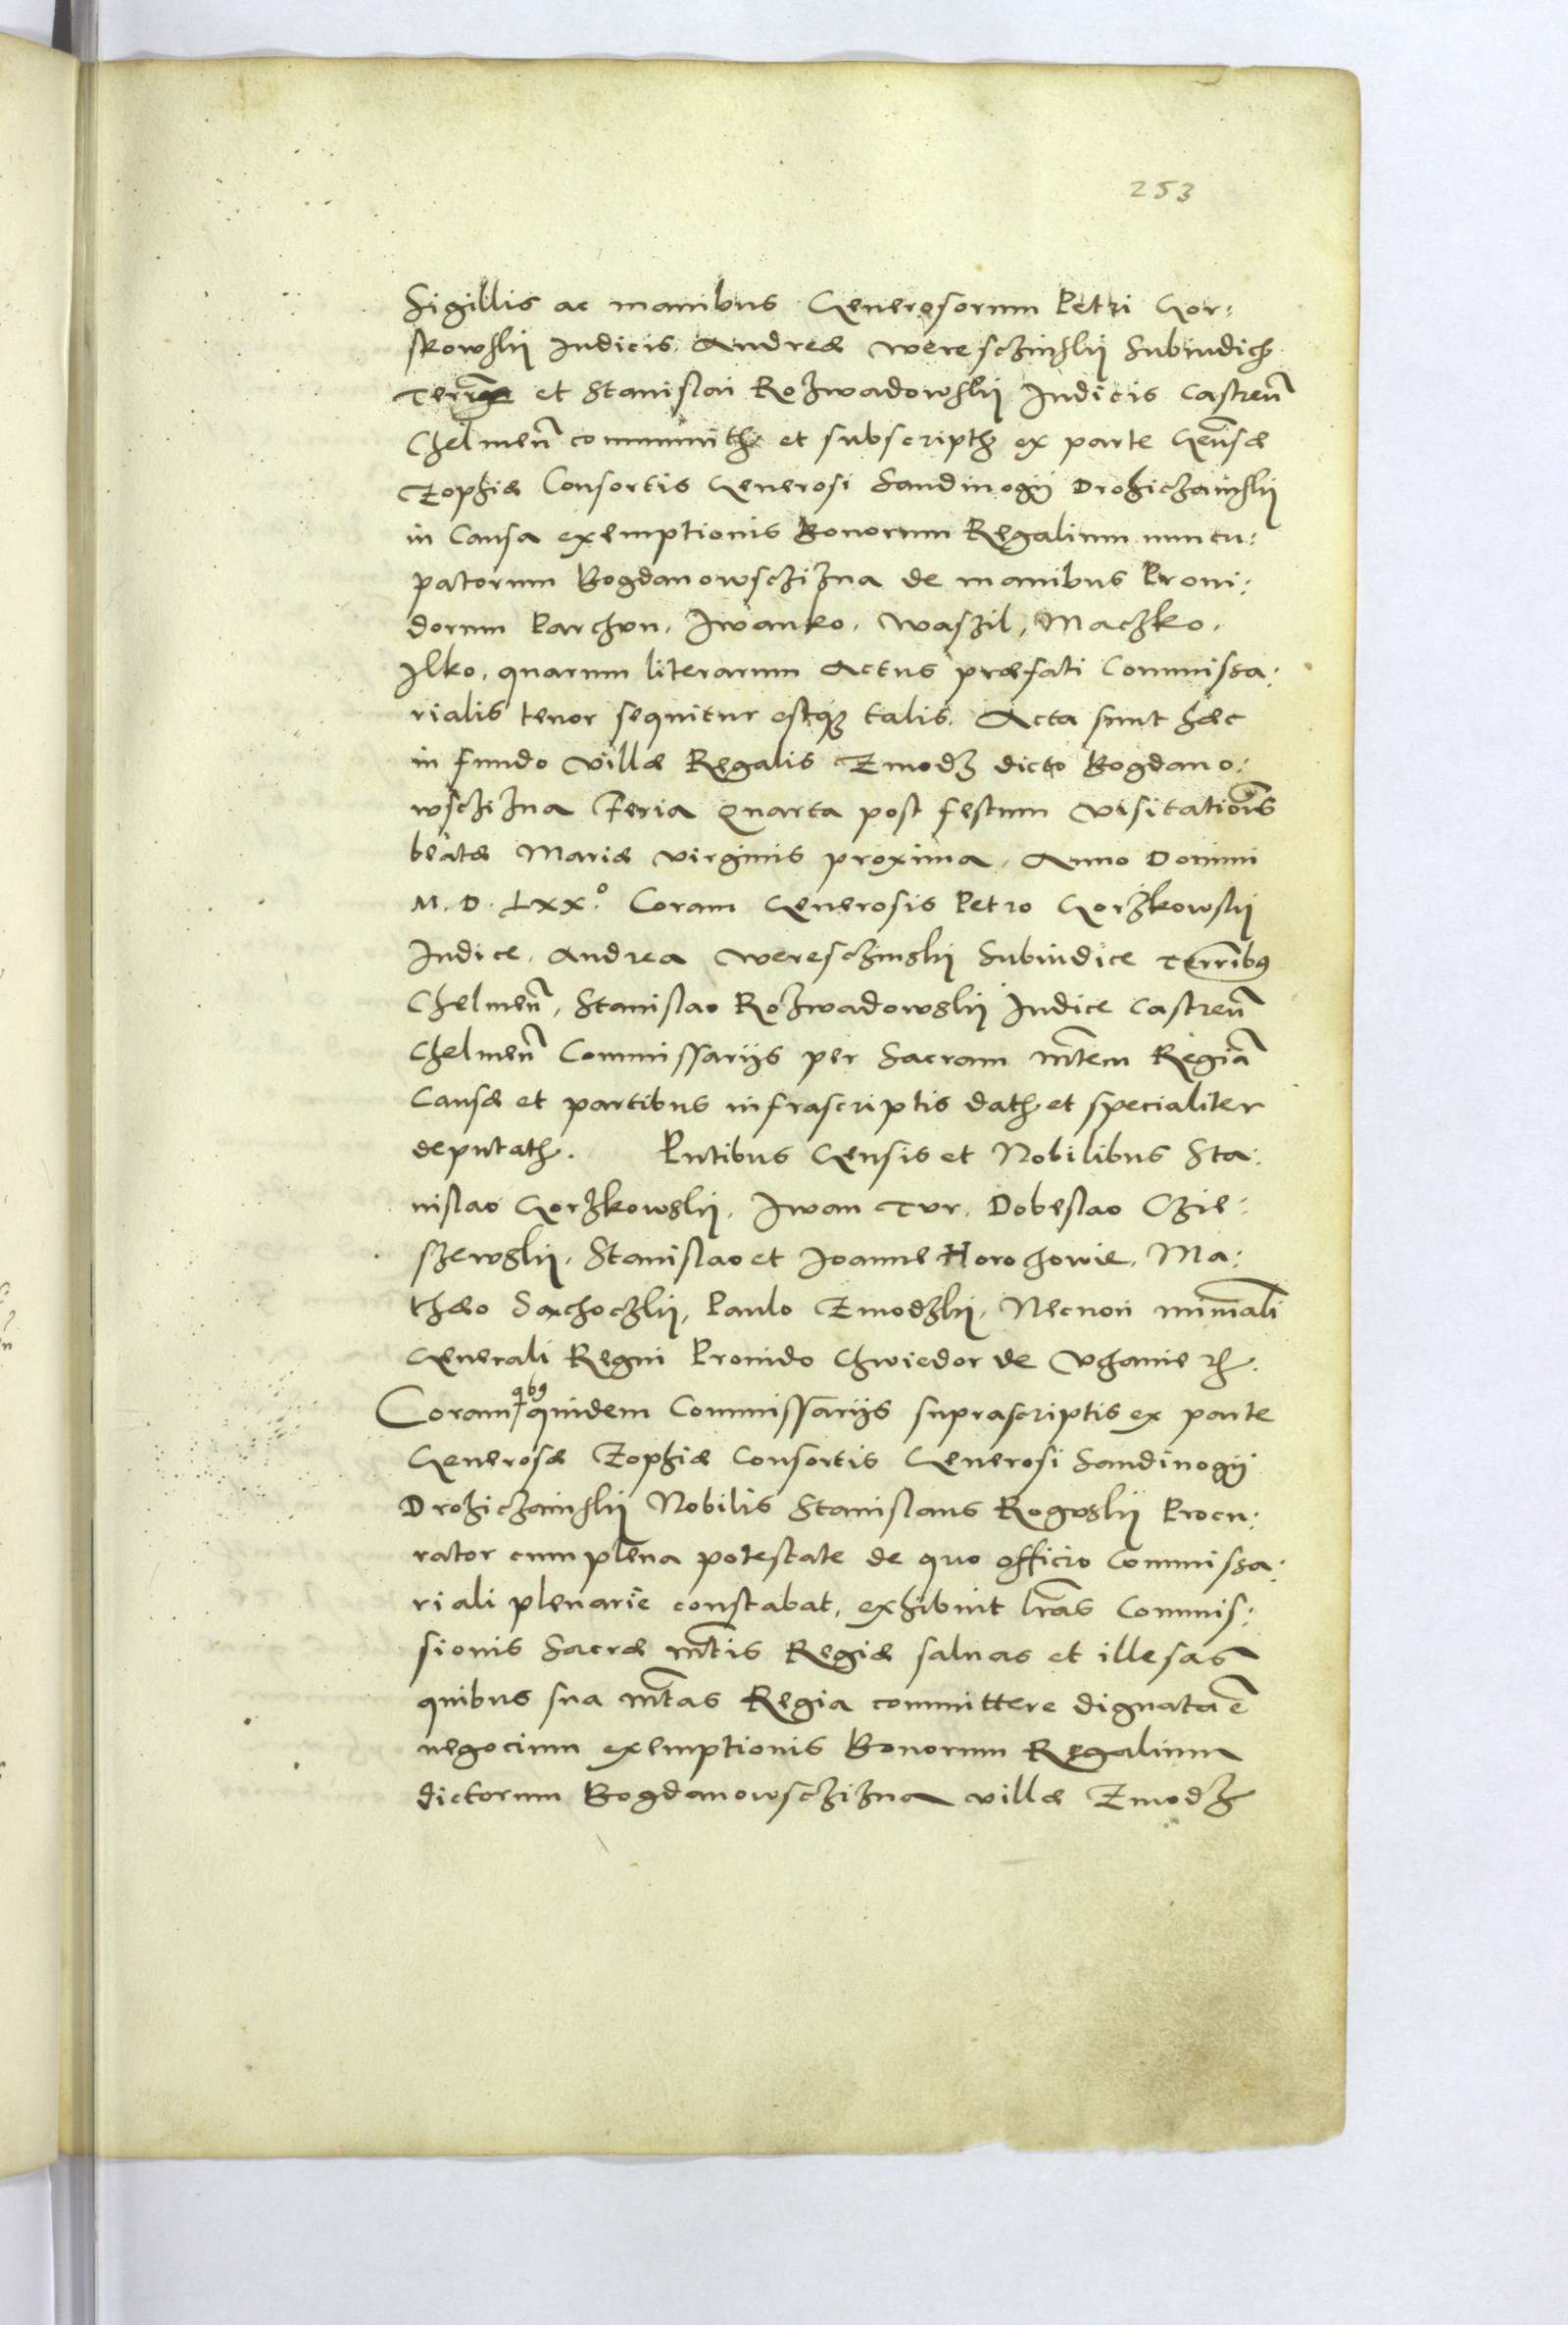 253
Sigillis ac manibus Generosorum Petri Gor:
skowskij Iudicis. Andreæ Wereschinskij Subiudicz
Terrae et Stanislai Rozwadowskij Iudicis Castren̄
Chelmen̄ communitz et subscriptz ex parte Gen̄sæ
Zophiæ Consortis Generosi Sandinogij Drohiczainskij
in Causa exemptionis Bonorum Regalium nuncu:
patorum Bogdanowsczizna de manibus Proui:
dorum Parchvn, Iwanko, Waszil, Maczko,
Ilko, quarum literarum Actus præfati Commissa:
rialis tenor sequitur estq3 talis. Acta sunt hæc
in fundo Villæ Regalis Zmodz dicto Bogdano:
wsczizna Feria Quarta post festum Visitatiōis
beatæ Mariæ Virginis proxima, Anno Domini
M. D. Lxx.° Coram Generosis Petro Gorzkowskij
Iudice, Andrea Wereschinskij Subiudice Terrib9
Chelmen̄, Stanislao Rozwadowskij Iudice Castren̄
Chelmen̄ Commissarijs per Sacram Mtem Regiā
Causæ et partibus infrascriptis datz et specialiter
deputatz. Pntibus Gensis et Nobilibus Sta:
nislao Gorzkowskij, Iwan Tvr, Dobeslao Czie:
szewskij, Stanislao et Ioanne Horochowie, Ma:
thæo Sachoczkij, Paulo Zmodzkij, Necnon minr̄ali
Generali Regni Prouido Chwiedor de Vhanie rz.
Coram qb9 quidem Commissarijs suprascriptis ex parte
Generosæ Zophiæ Consortis Generosi Sandinogij
Drohiczainskij Nobilis Stanislaus Rogvskij Procu:
rator cum plena potestate de quo officio Commissa:
riali plenarie constabat, exhibuit lr̄as Commis:
sionis Sacræ Mtis Regiæ saluas et illesas
quibus sua Mtas Regia committere dignata ē
negocium exemptionis Bonorum Regalium
dictorum Bogdanowsczizna villæ Zmodz